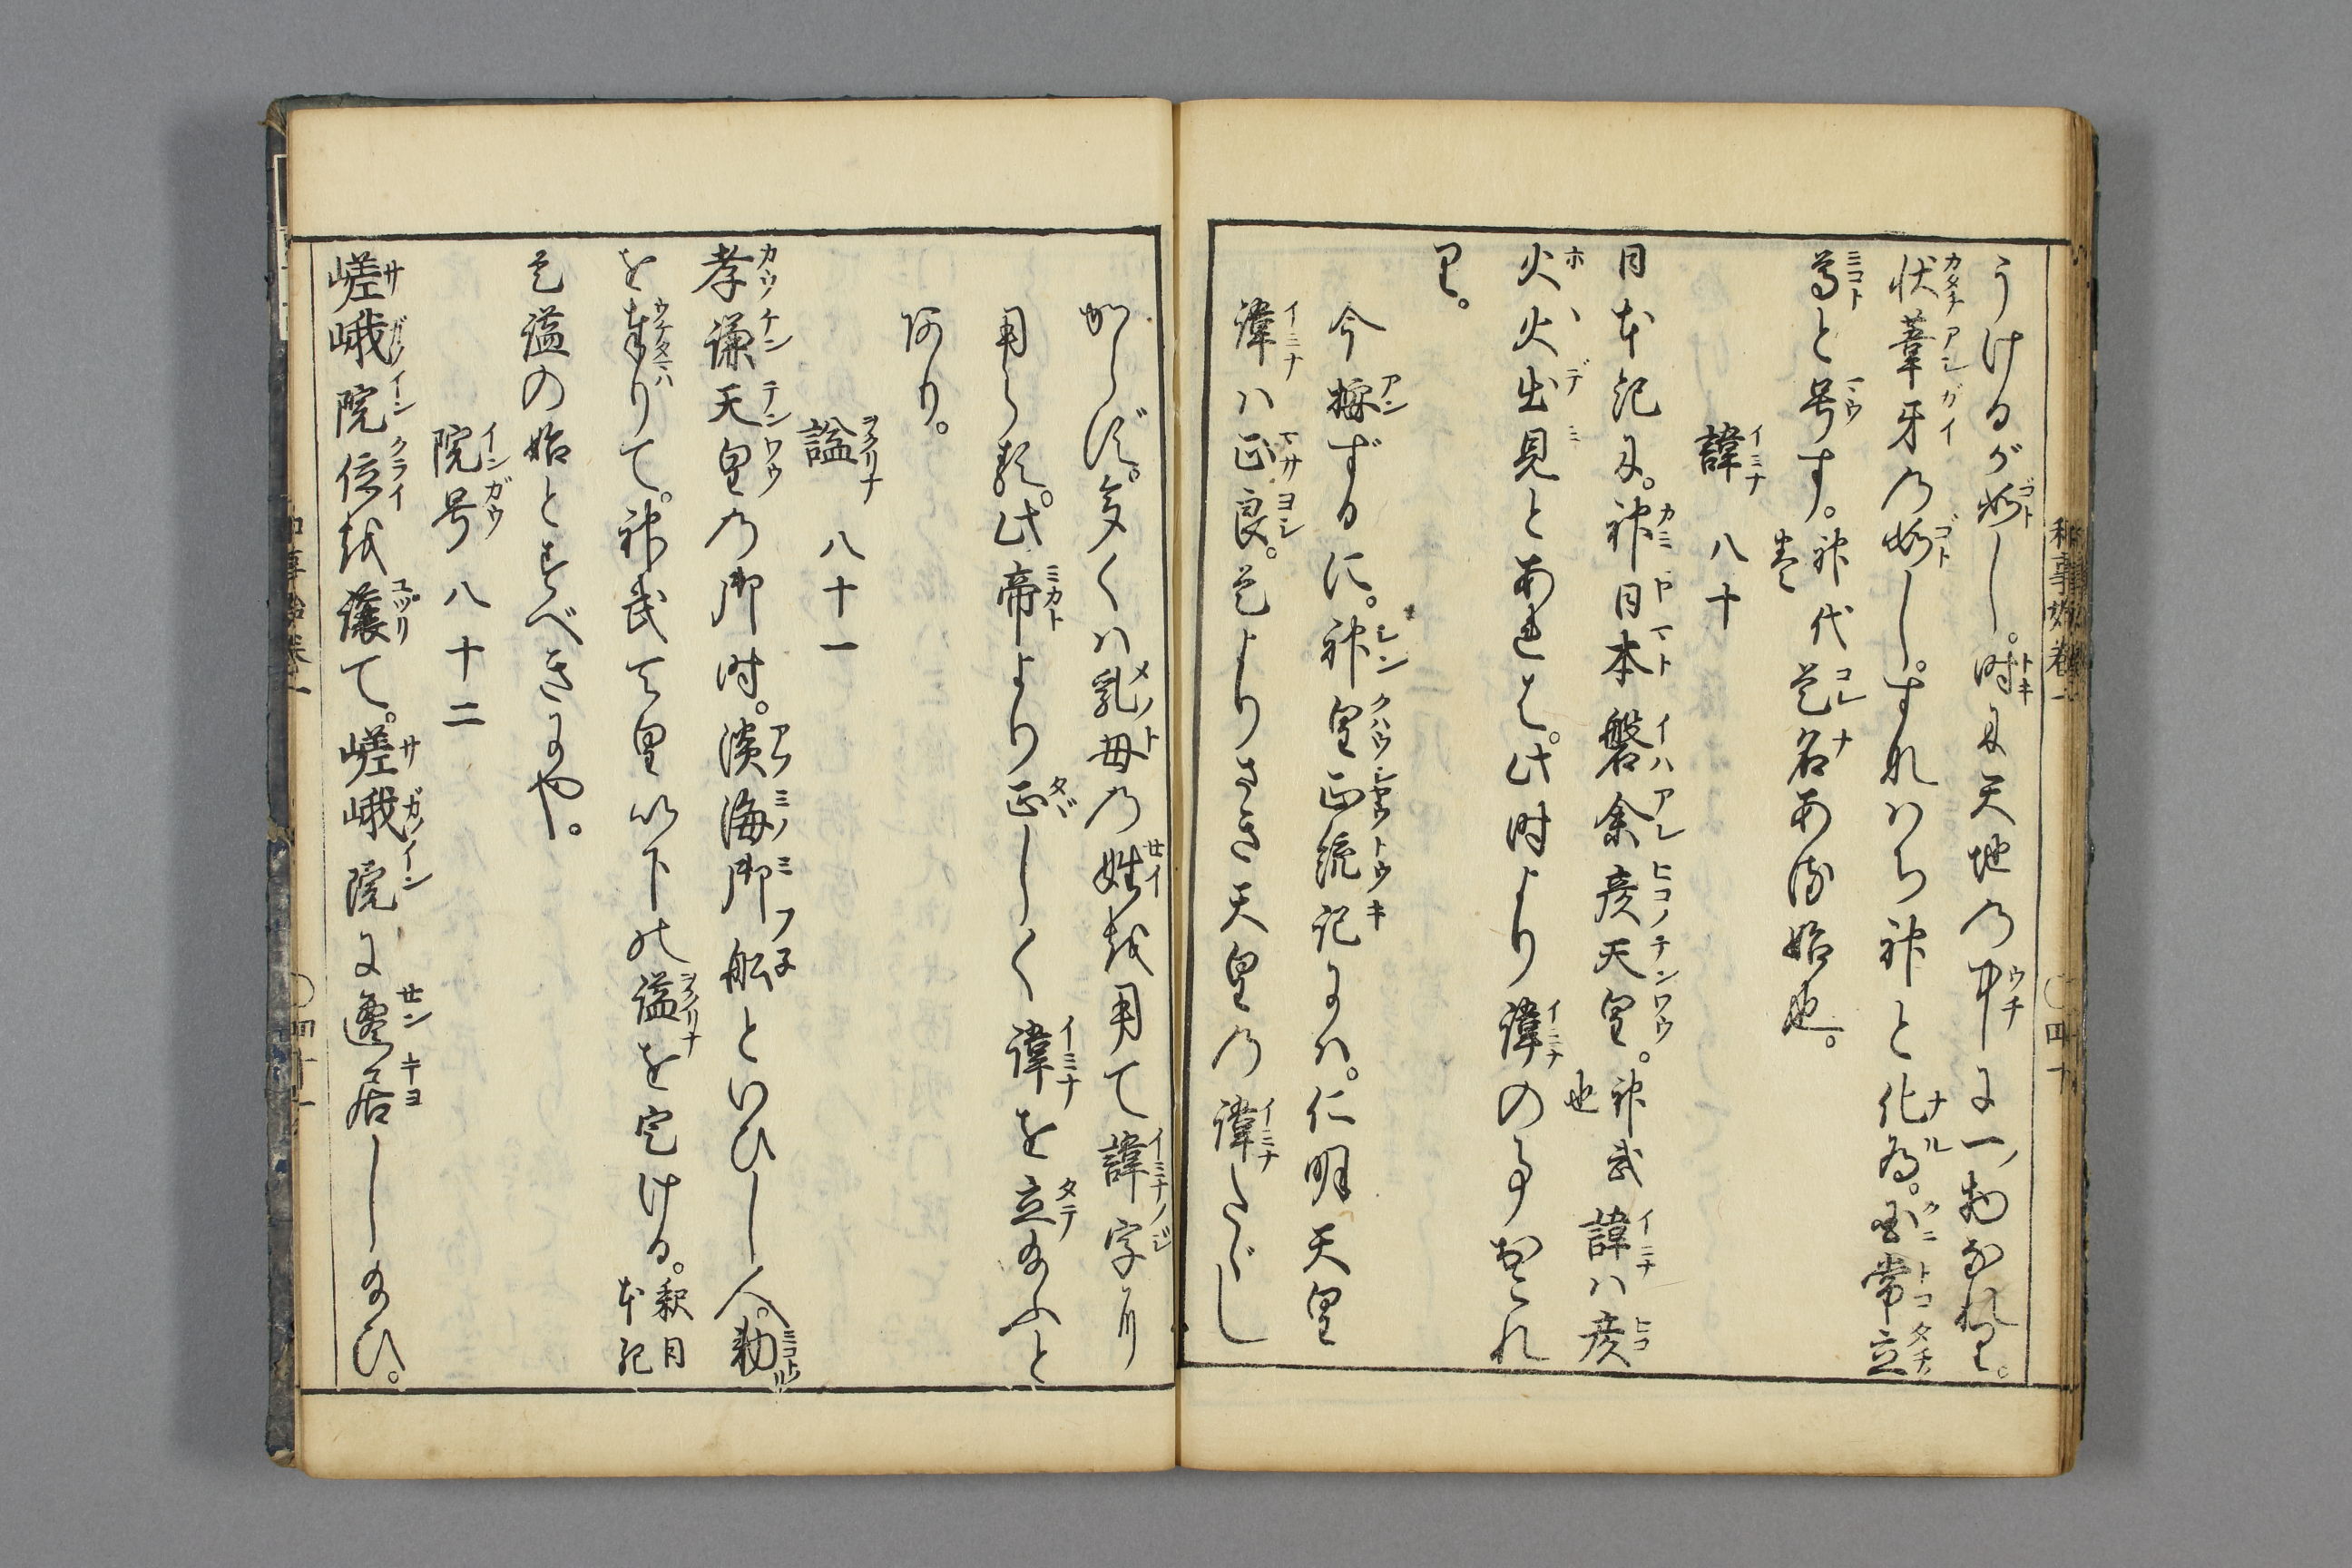 うけるが如し。時に天地の中に一物なれり。
状葦牙の如し。すなハち神と化為。国常立
尊と号す。神代巻 是名ある始也。
諱 八十
日本紀に。神日本磐余彦天皇。神武也 諱ハ彦
火火出見とあれば。此時より諱の事おこれ
り。
今按ずるに。神皇正統記にハ。仁明天皇
諱ハ正良。是よりさき天皇の諱たしし
かならず。多くハ乳母の姓を用て諱字に
用らる。此帝より正しく諱を立給ふと
あり。
諡 八十一
孝謙天皇の御時。淡海御船といひし人。勅
を奉りて。神武天皇以下の諡を定ける。釈日本紀
是諡の始とすべきにや。
院号 八十二
嵯峨院位を譲て。嵯峨院に遷居し給ひ。
和事始巻一
〇四十
和事始巻一
〇四十一